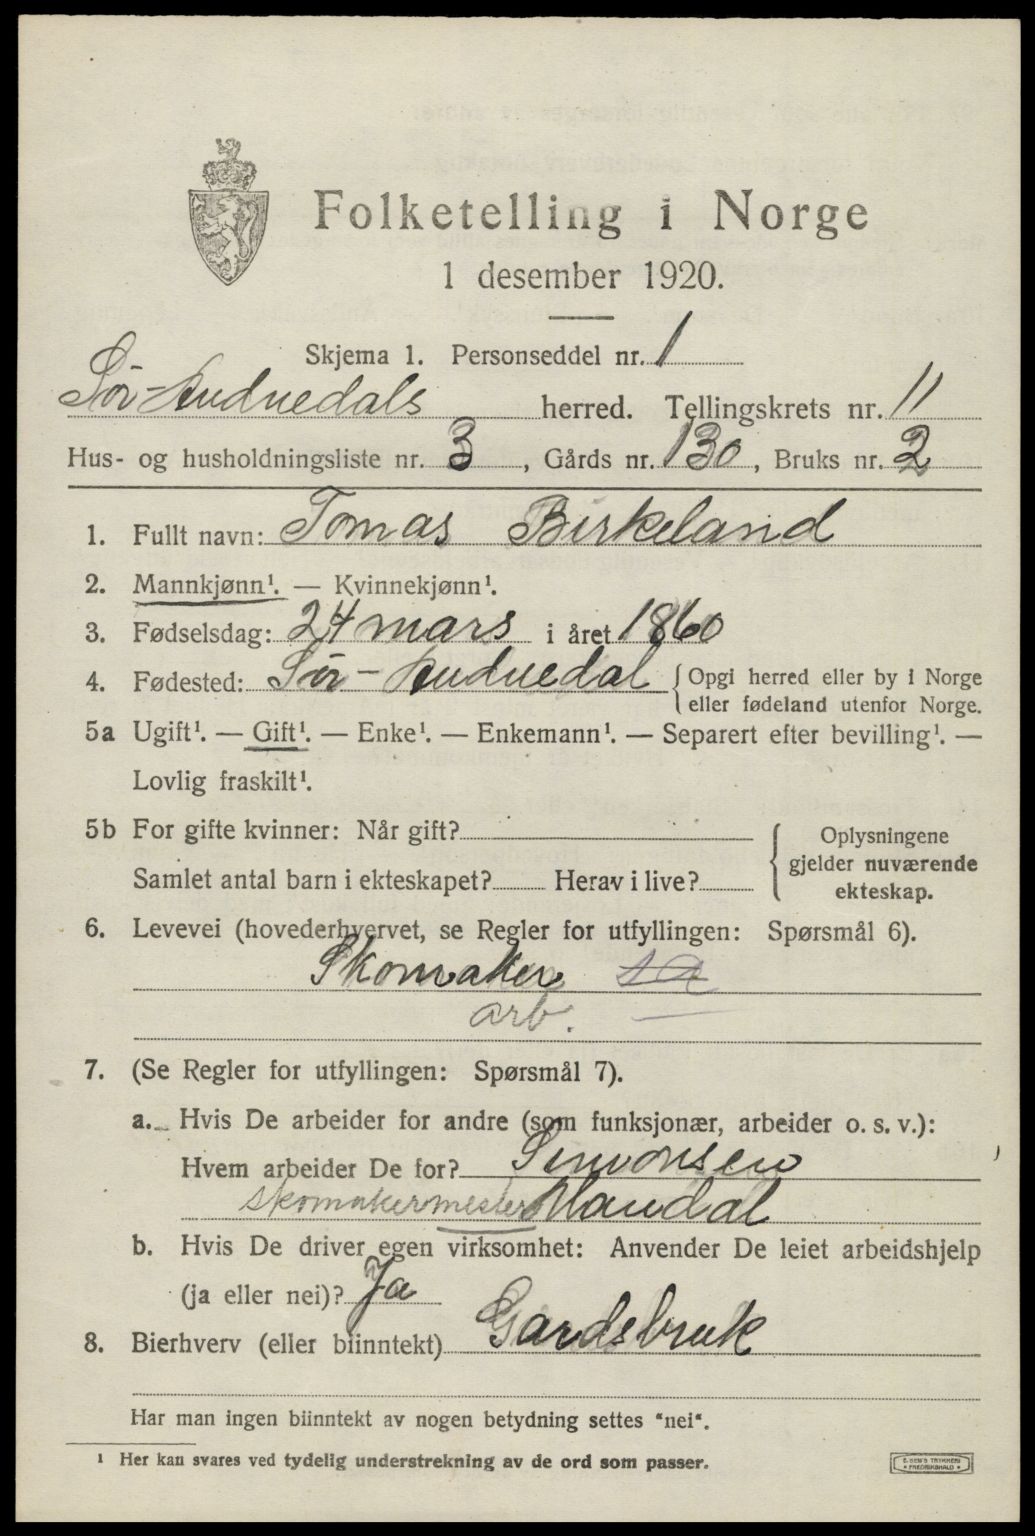 Folketelling i Norge
1 desember 1920.
Skjema 1. Personseddel nr. 1
Sør-Audnedals herred. Tellingskrets nr. 11
Hus- og husholdningsliste nr. 3, Gårds nr. 130, Bruks nr. 2
1. Fullt navn: Tomas Birkeland
2. Mannkjønn¹. — Kvinnekjønn¹.
3. Fødselsdag: 24 mars i året 1860
4. Fødested: Sør-Audnedal { Opgi herred eller by i Norge
eller fødeland utenfor Norge.
5a Ugift¹. — Gift¹. — Enke¹. — Enkemann¹. — Separert efter bevilling¹. —
Lovlig fraskilt¹.
5b For gifte kvinner: Når gift?
Samlet antal barn i ekteskapet? Herav i live?
Oplysningene
gjelder nuværende
ekteskap.
6. Levevei (hovederhvervet, se Regler for utfyllingen: Spørsmål 6).
Skomaker
arb.
7. (Se Regler for utfyllingen: Spørsmål 7).
a. Hvis De arbeider for andre (som funksjonær, arbeider o. s. v.):
Hvem arbeider De for? Simonsen
skomakermester Mandal
b. Hvis De driver egen virksomhet: Anvender De leiet arbeidshjelp
(ja eller nei)? Ja
8. Bierhverv (eller biinntekt) Gardsbruk
Har man ingen biinntekt av nogen betydning settes "nei".
¹ Her kan svares ved tydelig understrekning av de ord som passer.